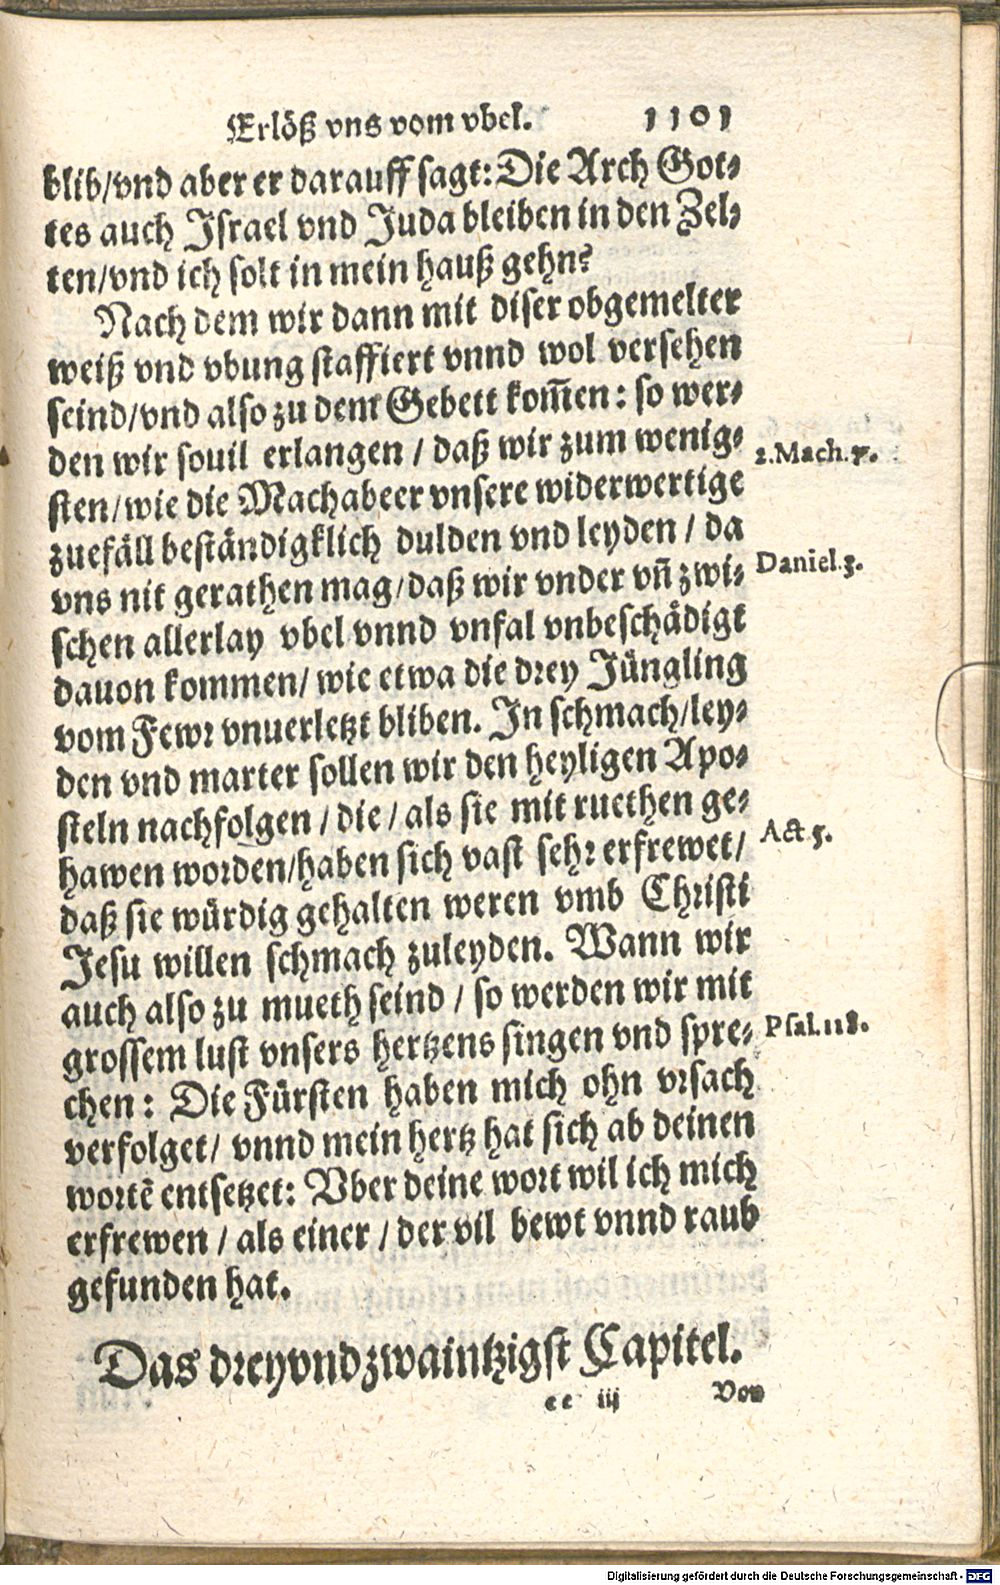 Erlöß vns vom vbel. 1101
blib/vnd aber er darauff sagt: Die Arch Got-
tes auch Israel vnd Juda bleiben in den Zel-
ten/vnd ich solt in mein hauß gehn?
Nach dem wir dann mit diser obgemelter
weiß vnd vbung staffiert vnnd wol versehen
seind/vnd also zu dem Gebett kom̃en: so wer-
den wir souil erlangen / daß wir zum wenig-
2.Mach.7.
sten/wie die Machabeer vnsere widerwertige
zuefäll beständigklich dulden vnd leyden / da
vns nit gerathen mag/daß wir vnder vñ zwi-
Daniel.3.
schen allerlay vbel vnnd vnfal vnbeschädigt
dauon kommen/ wie etwa die drey Jüngling
vom Fewr vnuerletzt bliben. In schmach/ley-
den vnd marter sollen wir den heyligen Apo-
steln nachfolgen / die / als sie mit ruethen ge-
Act.5.
hawen worden/haben sich vast sehr erfrewet/
daß sie würdig gehalten weren vmb Christi
Jesu willen schmach zuleyden. Wann wir
auch also zu mueth seind / so werden wir mit
grossem lust vnsers hertzens singen vnd spre-
Psal.118.
chen: Die Fürsten haben mich ohn vrsach
verfolget/ vnnd mein hertz hat sich ab deinen
wortẽ entsetzet: Vber deine wort wil ich mich
erfrewen / als einer / der vil bewt vnnd raub
gefunden hat.
Das dreyvndzwaintzigst Capitel.
cc iij Von
Digitalisierung gefördert durch die Deutsche Forschungsgemeinschaft - DFG